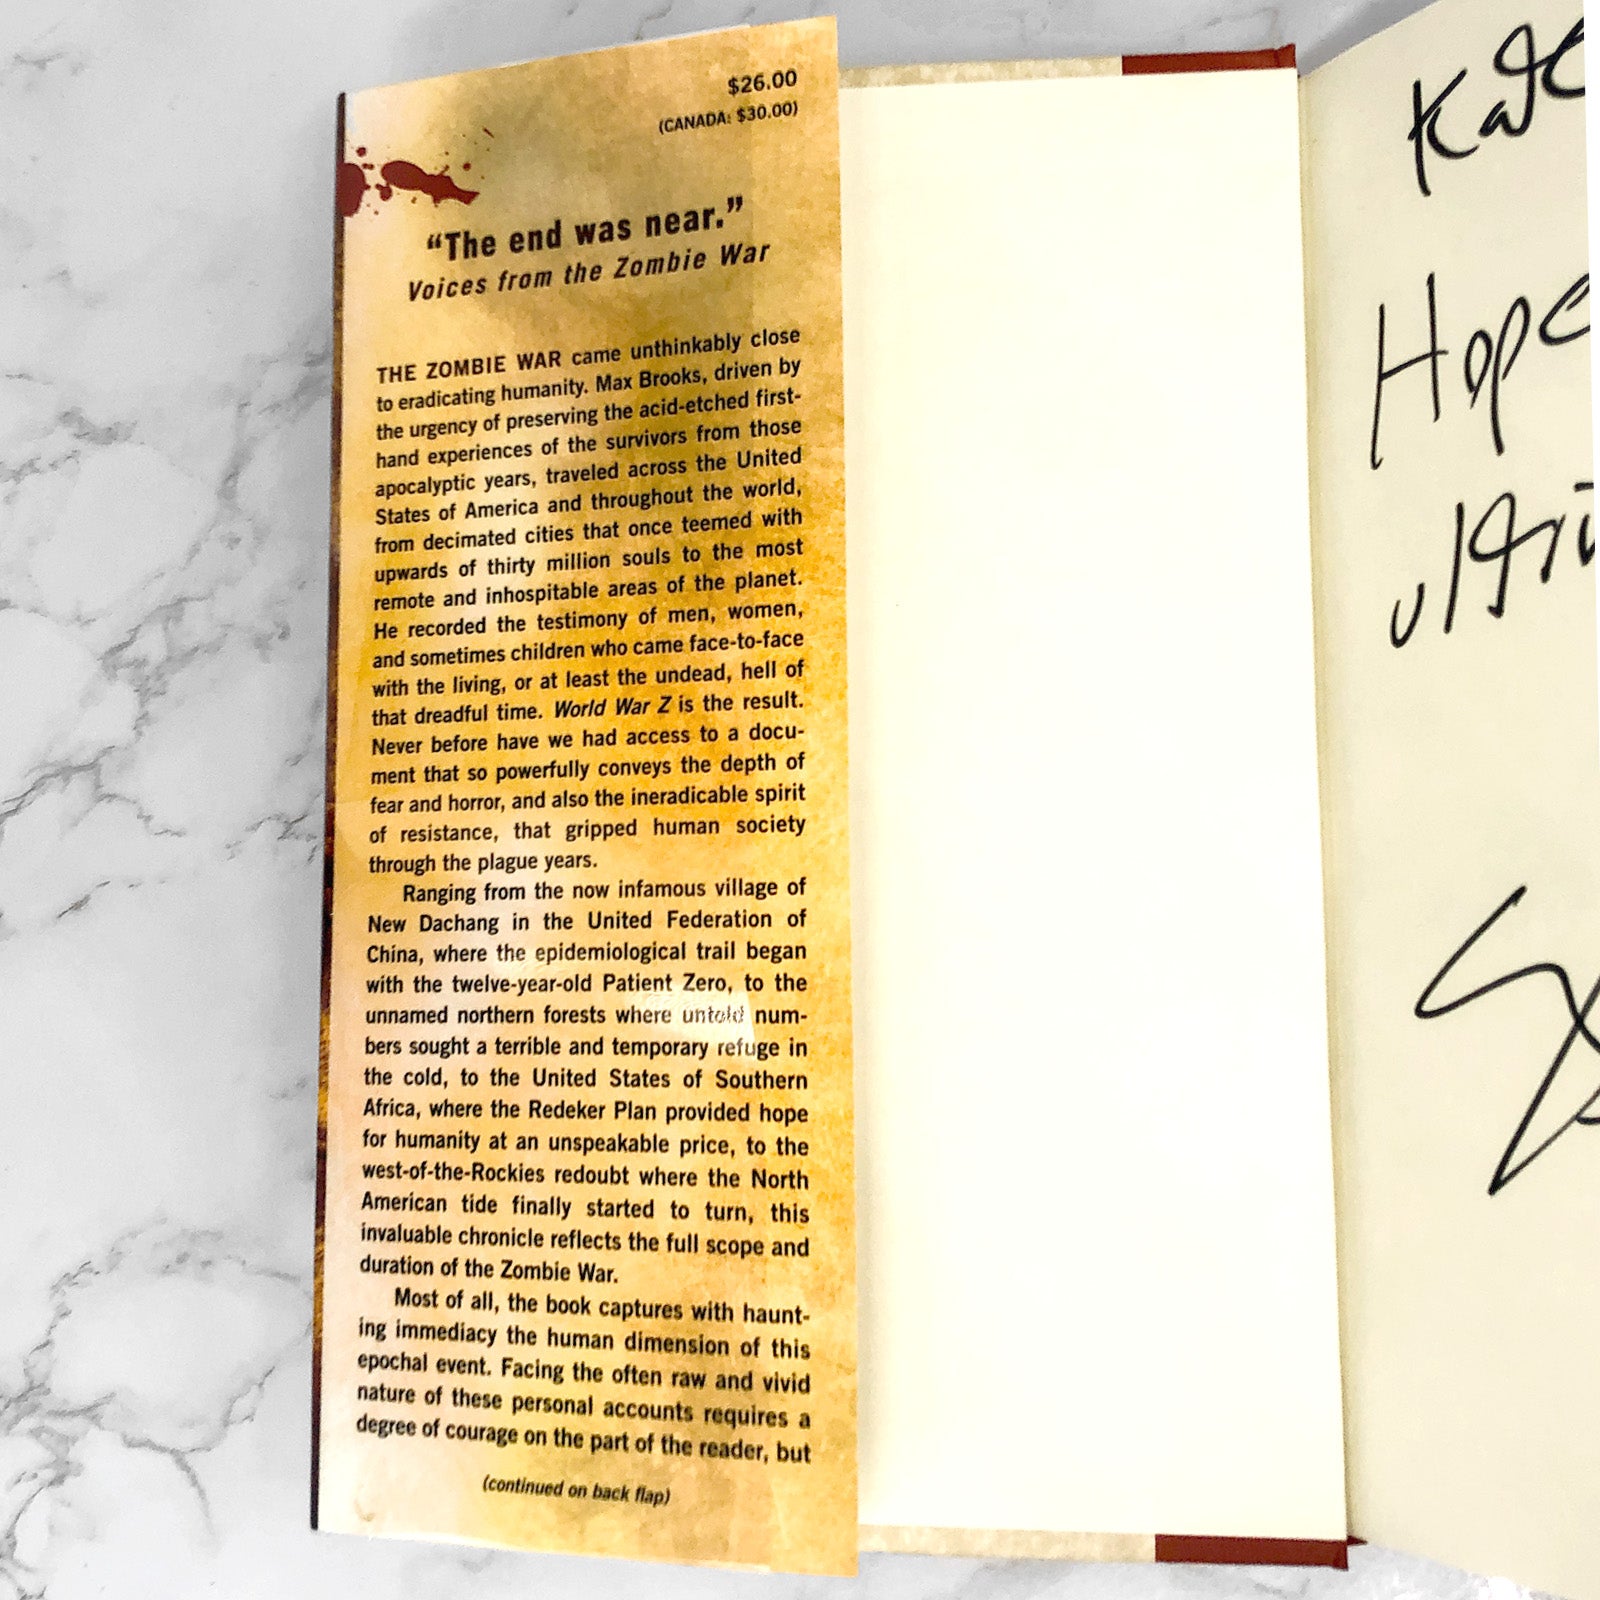 $26.00
(CANADA: $30.00)
“The end was near.”
Voices from the Zombie War
THE ZOMBIE WAR came unthinkably close
to eradicating humanity. Max Brooks, driven by
the urgency of preserving the acid-etched first-
hand experiences of the survivors from those
apocalyptic years, traveled across the United
States of America and throughout the world,
from decimated cities that once teemed with
upwards of thirty million souls to the most
remote and inhospitable areas of the planet.
He recorded the testimony of men, women,
and sometimes children who came face-to-face
with the living, or at least the undead, hell of
that dreadful time. World War Z is the result.
Never before have we had access to a docu-
ment that so powerfully conveys the depth of
fear and horror, and also the ineradicable spirit
of resistance, that gripped human society
through the plague years.
Ranging from the now infamous village of
New Dachang in the United Federation of
China, where the epidemiological trail began
with the twelve-year-old Patient Zero, to the
unnamed northern forests where untold num-
bers sought a terrible and temporary refuge in
the cold, to the United States of Southern
Africa, where the Redeker Plan provided hope
for humanity at an unspeakable price, to the
west-of-the-Rockies redoubt where the North
American tide finally started to turn, this
invaluable chronicle reflects the full scope and
duration of the Zombie War.
Most of all, the book captures with haunt-
ing immediacy the human dimension of this
epochal event. Facing the often raw and vivid
nature of these personal accounts requires a
degree of courage on the part of the reader, but
(continued on back flap)
Hope